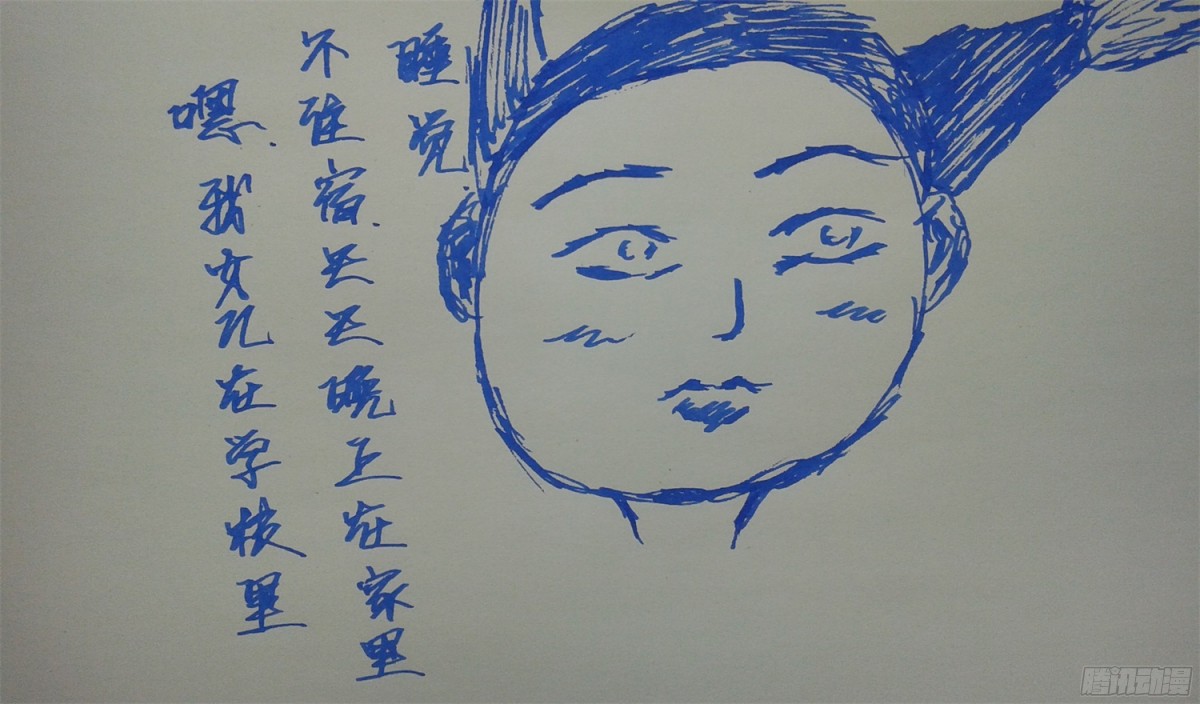 嘿、我女儿在学校里
不住宿、天天晚上在家里
睡觉
腾讯动漫